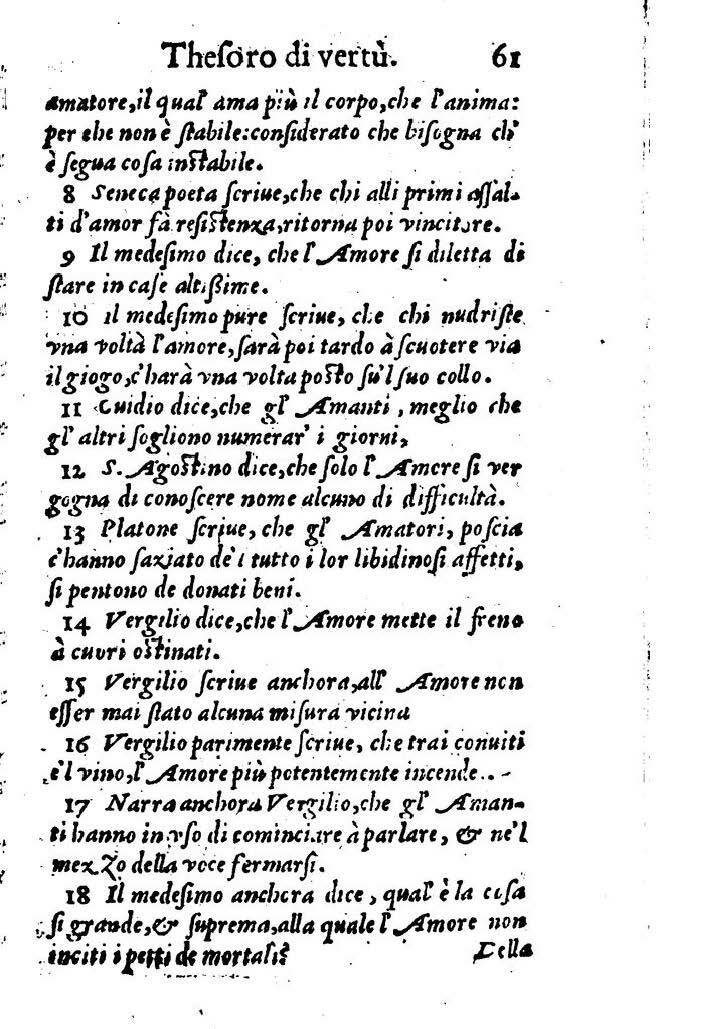 Theſoro di vertù. 61
amatore,il qual' ama più il corpo,che l'anima:
per che non è ſtabile:conſiderato che biſogna ch'
è ſegua coſa inſtabile.
8 Seneca poeta ſcriue,che chi alli primi aſſal-
ti d'amor fà reſiſtenza,ritorna poi vincitore.
9 Il medeſimo dice, che l'Amore ſi diletta di
ſtare in caſe altißime.
10 il medeſimo pure ſcriue, che chi nudriſte
vna voltà l'amore,ſarà poi tardo à ſcuotere via
il giogo,c'harà vna volta poſto ſu'l ſuo collo.
11 Cuidio dice,che gl' Amanti, meglio che
gl' altri ſogliono numerar' i giorni,
12 S. Agoſtino dice,che ſolo l'Amore ſi ver
gogna di conoſcere nome alcuno di difficultà.
13 Platone ſcriue, che gl' Amatori, poſcia
c'hanno ſaziato de'l tutto i lor libidinoſi affetti,
ſi pentono de donati beni.
14 Vergilio dice,che l'Amore mette il freno
à cuori oſtinati.
15 Vergilio ſcriue anchora,all' Amore non
eſſer mai ſtato alcuna miſura vicina
16 Vergilio parimente ſcriue, che trai conuiti
e'l vino,l'Amore più potentemente incende..
17 Narra anchora Vergilio,che gl' Aman-
ti hanno in vſo di cominciare à parlare, & ne'l
mezzo della voce fermarſi.
18 Il medeſimo anchora dice, qual' è la coſa
ſi grande,& ſuprema,alla quale l'Amore non
inciti i petti de mortali?
Della